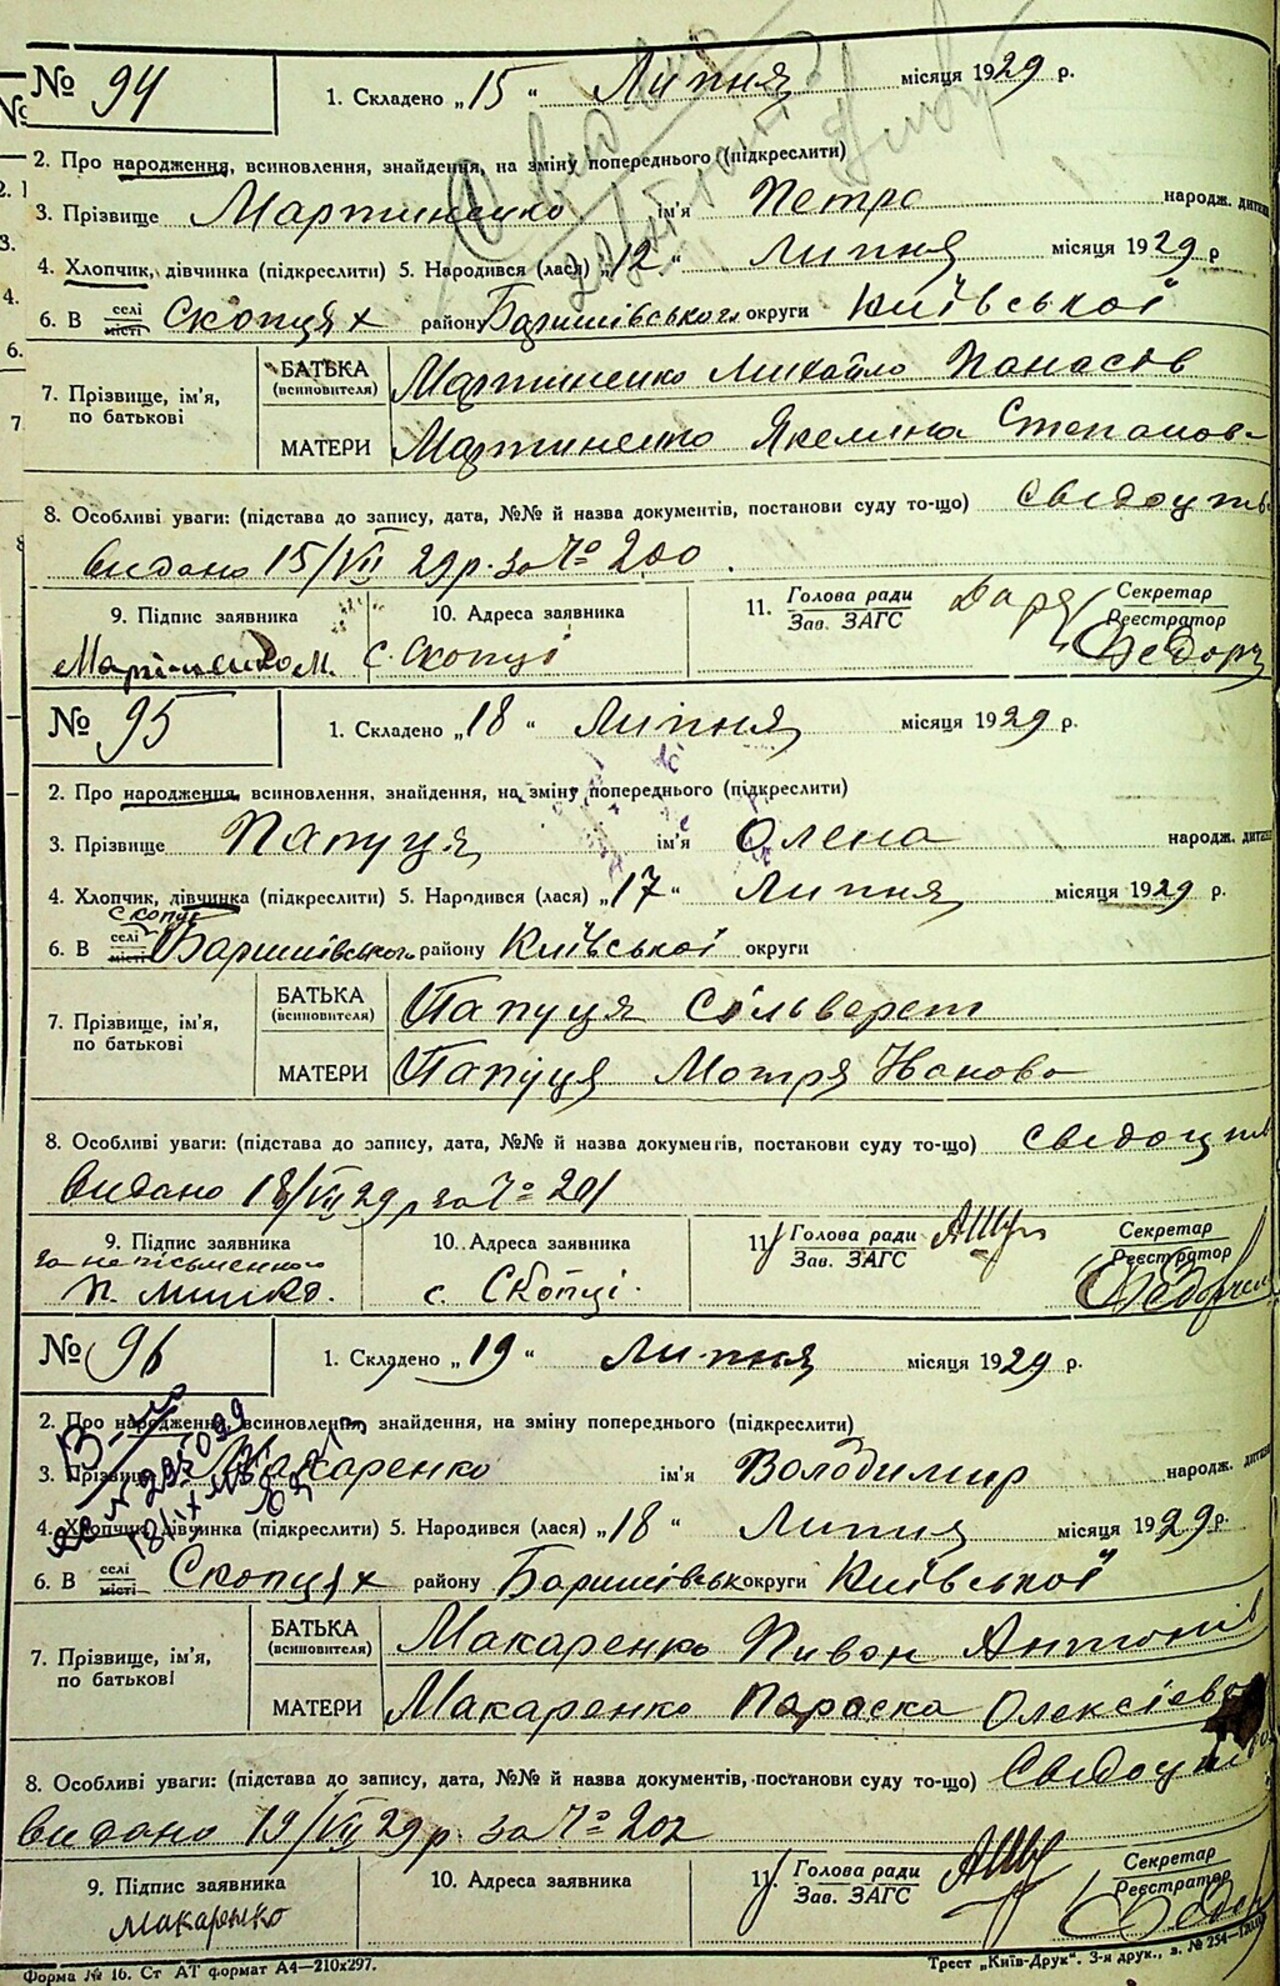 № 94
1. Складено „15“ Липня місяця 1929 р.
2. Про народження, всиновлення, знайдення, на зміну попереднього (підкреслити)
3. Прізвище Мартиненко ім'я Петро народж. дитини
4. Хлопчик, дівчинка (підкреслити) 5. Народився (лася) „12“ Липня місяця 1929 р
6. В селі місті Скопцях району Баришівського округи Київської
7. Прізвище, ім'я, по батькові
БАТЬКА (всиновителя) Мартиненко Михайло Панасов
МАТЕРИ Мартиненко Якелина Степанов
8. Особливі уваги: (підстава до запису, дата, №№ й назва документів, постанови суду то-що) Свидоцтв
видано 15/VII 29 р. за № 200
9. Підпис заявника 10. Адреса заявника 11. Голова ради Зав. ЗАГС Секретар Реєстратор
Мартиненко М. с. Скопці
№ 95
1. Складено „18“ Липня місяця 1929 р.
2. Про народження, всиновлення, знайдення, на зміну попереднього (підкреслити)
3. Прізвище Папуця ім'я Олена народж. дитини
4. Хлопчик, дівчинка (підкреслити) 5. Народився (лася) „17“ Липня місяця 1929 р.
6. В селі місті Скопці Баришівського району Київської округи
7. Прізвище, ім'я, по батькові
БАТЬКА (всиновителя) Папуця Сільверст
МАТЕРИ Папуця Мотря
8. Особливі уваги: (підстава до запису, дата, №№ й назва документів, постанови суду то-що) Свидоцтв
видано 18/VII 29 р за № 201
9. Підпис заявника 10. Адреса заявника 11. Голова ради Зав. ЗАГС Секретар Реєстратор
за неписьменного
с. Скопці.
№ 96
1. Складено „19“ Липня місяця 1929 р.
2. Про народження, всиновлення, знайдення, на зміну попереднього (підкреслити)
3. Прізвище Макаренко ім'я Володимир народж. дитини
4. Хлопчик, дівчинка (підкреслити) 5. Народився (лася) „18“ Липня місяця 1929 р.
6. В селі місті Скопцях району Баришівськ округи Київської
7. Прізвище, ім'я, по батькові
БАТЬКА (всиновителя) Макаренко Пивон Антонів
МАТЕРИ Макаренко Параска Олексієв
8. Особливі уваги: (підстава до запису, дата, №№ й назва документів, постанови суду то-що) Свидоцтво
видано 19/VII 29 р. за № 202
9. Підпис заявника 10. Адреса заявника 11. Голова ради Зав. ЗАГС Секретар Реєстратор
Макаренко
Форма № 16. Ст АТ формат А4—210х297. Трест „Київ-Друк“. 3-я друк., з. № 254—